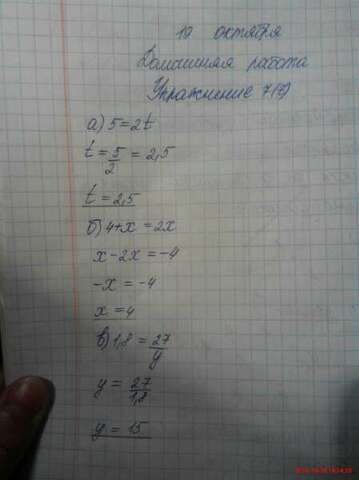 10 октября
Домашняя работа
Упражнение 7(б)
а) 5=2t
t = 5/2 = 2,5
t = 2,5
б) 4+x = 2x
x - 2x = -4
-x = -4
x = 4
в) 1,8 = 27/y
y = 27/1,8
y = 15